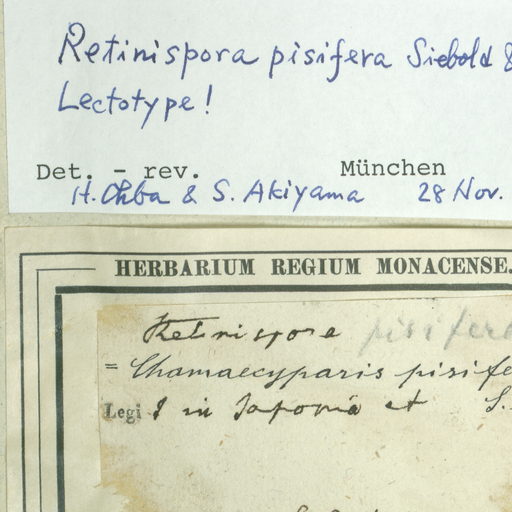 Retinispora pisifera Siebold &
Lectotype!
Det. - rev. München
H. Ohba & S. Akiyama 28 Nov.
HERBARIUM REGIUM MONACENSE.
Retinispora pisifera
= Chamaecyparis pisife
Legi in Japonia et S.